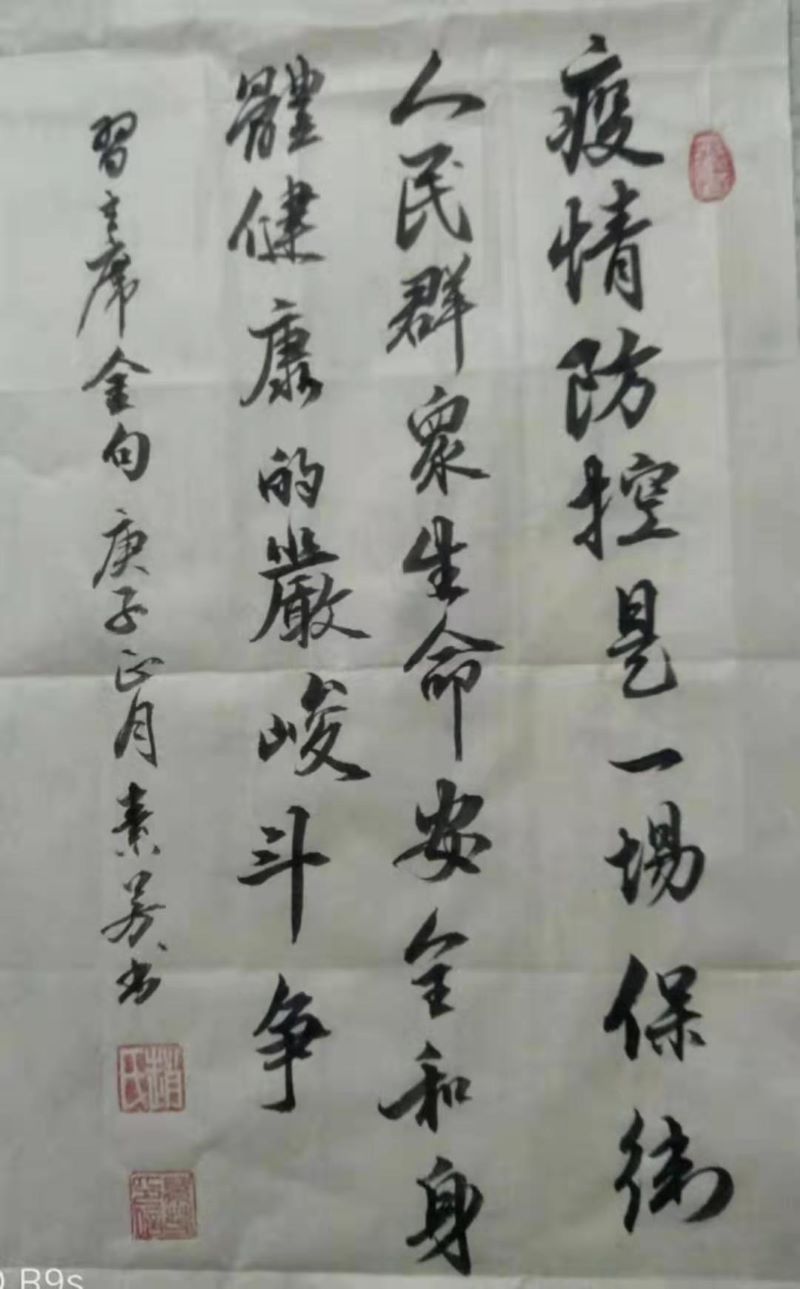 疫情防控是一場保衛
人民群眾生命安全和身
體健康的嚴峻斗争
習主席金句 庚子正月 素芳书
B9s